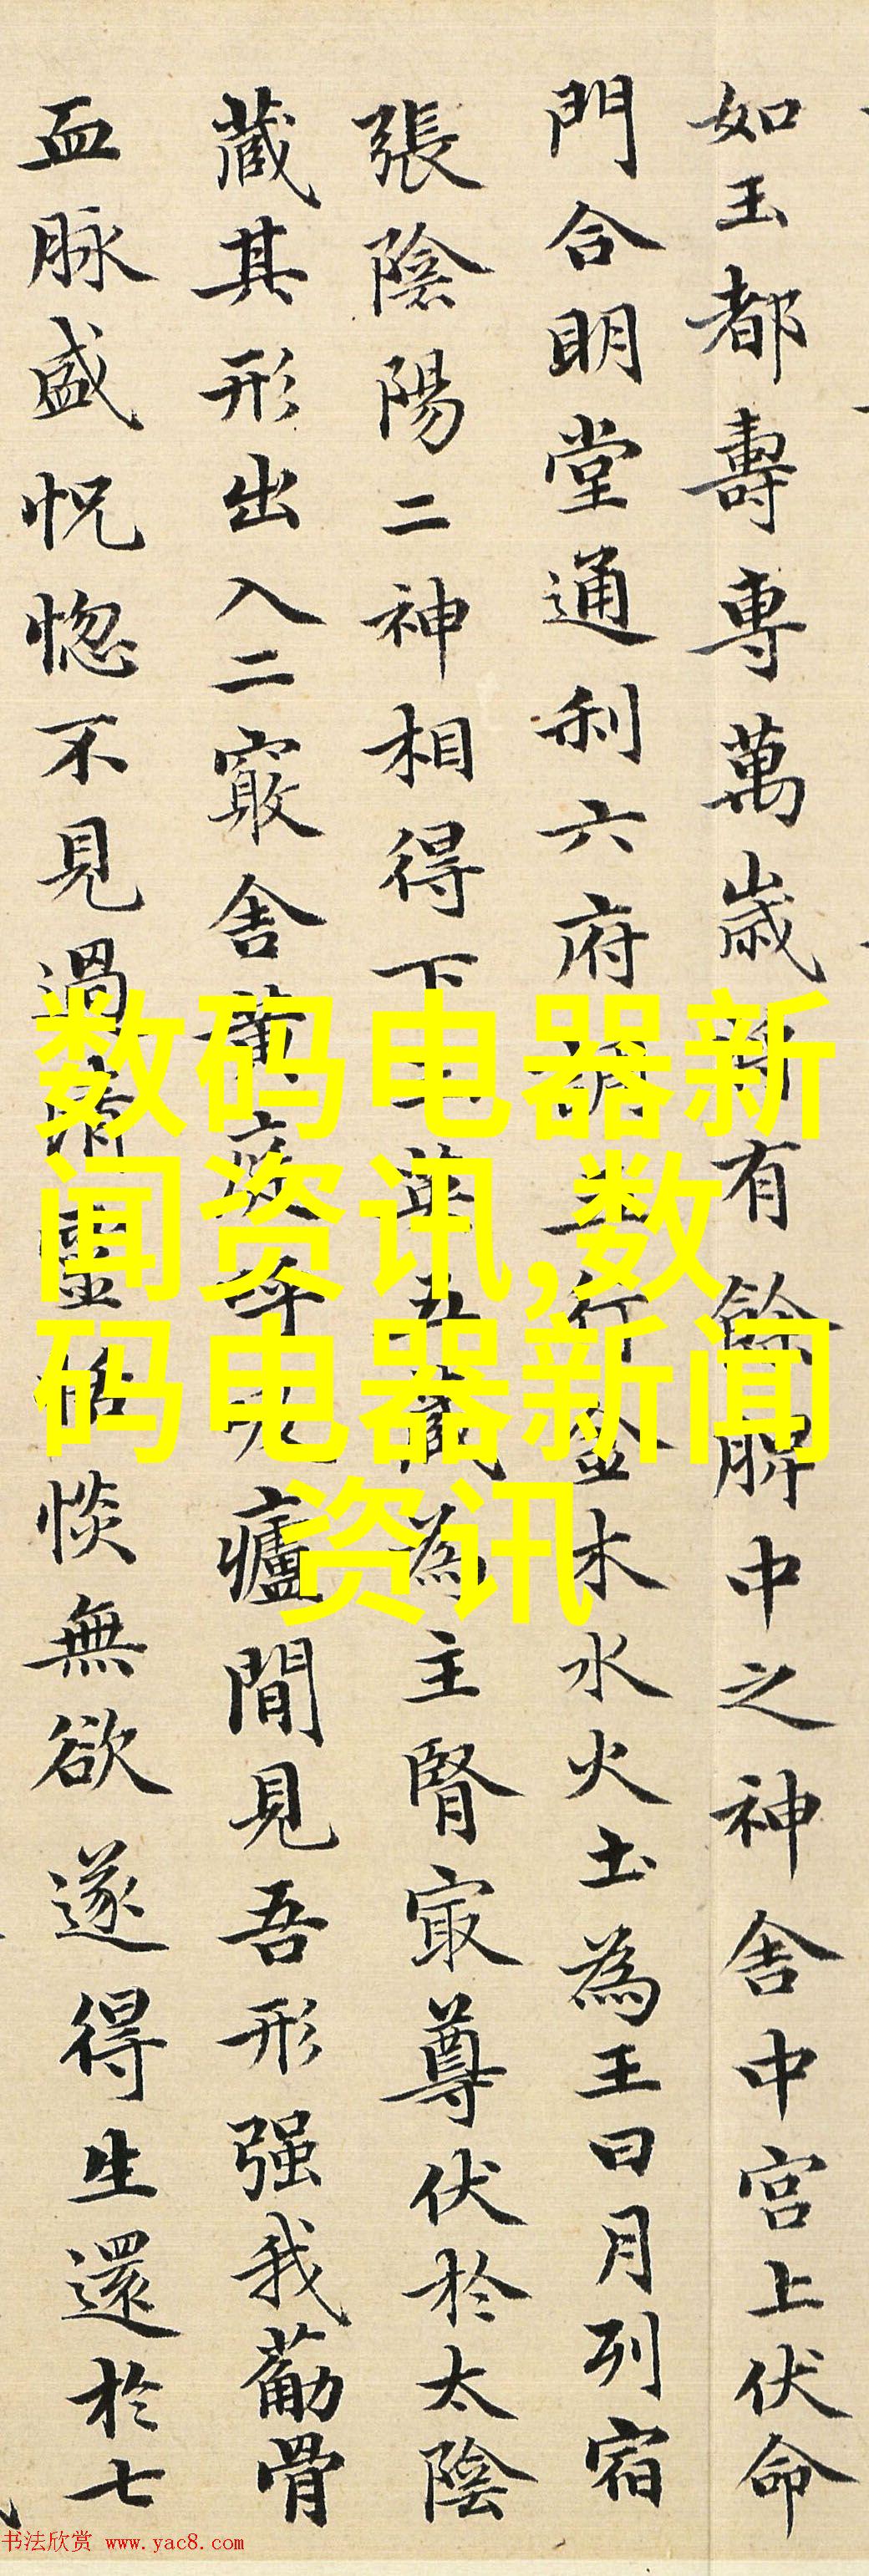 如玉都壽專萬歲将有餘脾中之神舍中宮上伏命
門合明堂通利六府調五行金木水火土為王日月列宿
張陰陽二神相得下玉英五藏為主腎寂尊伏於太陰
蔵其形出入二竅舍黃庭呼吸廬間見吾形强我筋骨
血脉盛怳惚不見過清靈恬惔無欲遂得生還於七
数码电器新
闻资讯,数
码电器新闻
资讯
书法欣赏 www.yac8.com